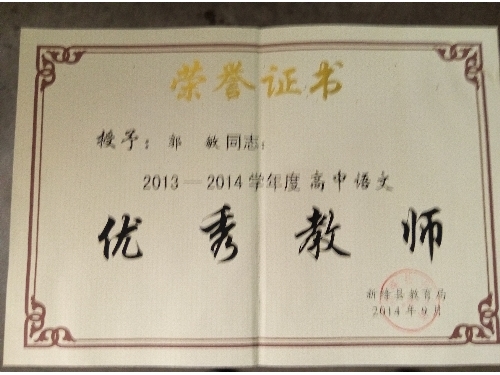 荣誉证书
授予：郭 敏同志：
2013—2014学年度高中语文
优秀教师
新绛县教育局
2014年9月